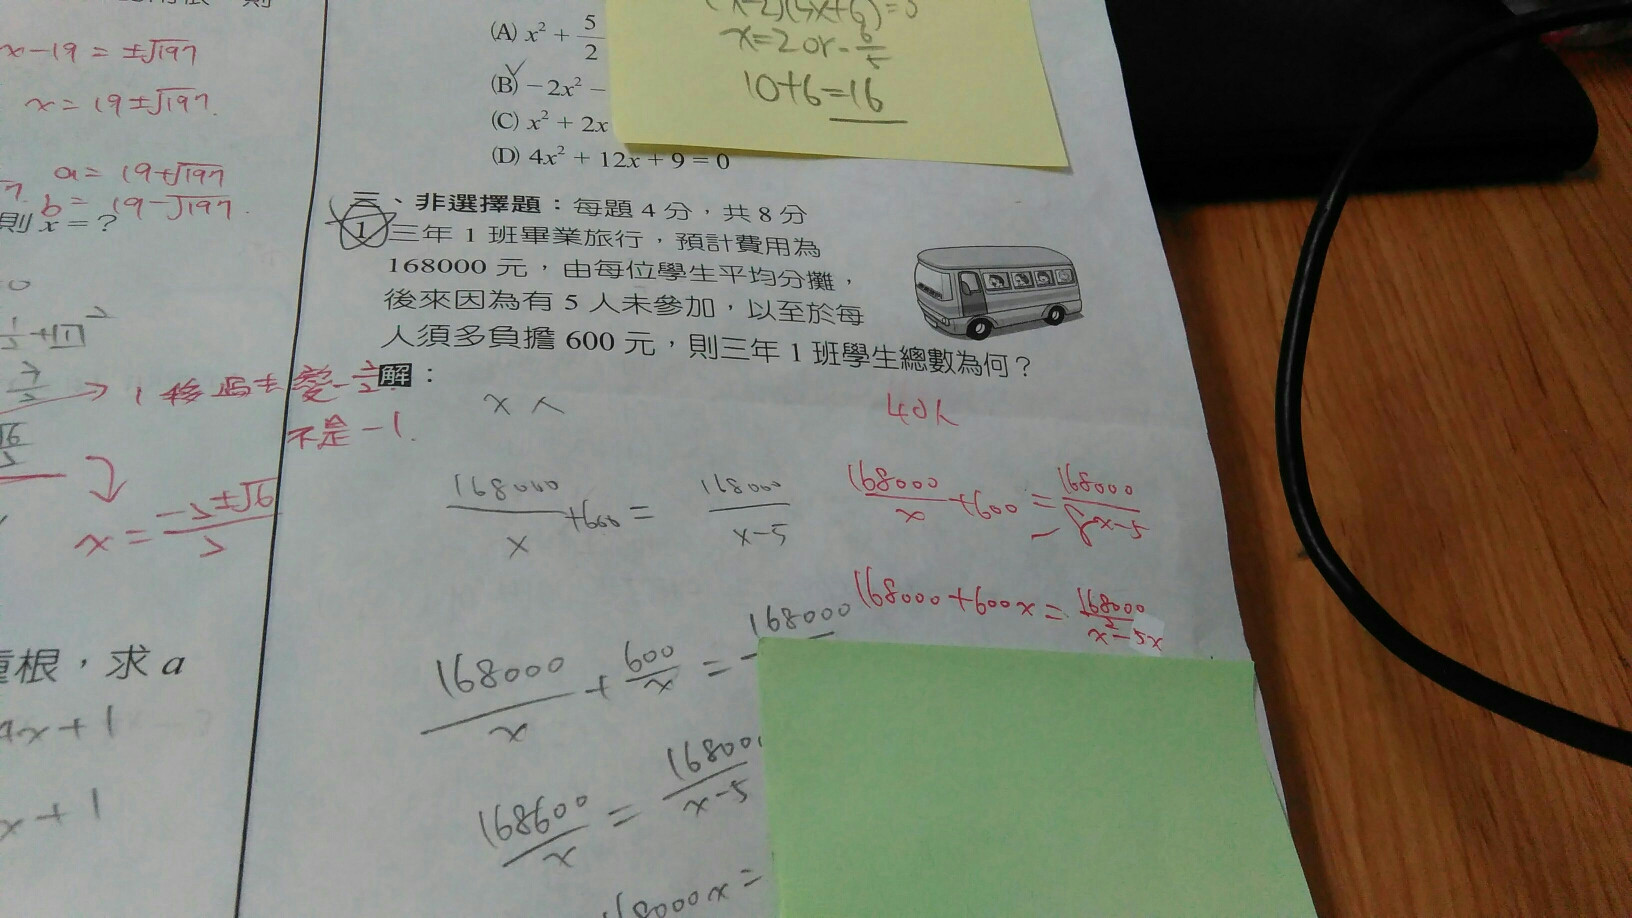 x-19=±√197
x=19±√197.
a=19+√197
b=19-√197.
則 x = ?
1移過去變-1/2.
不是-1.
x=(-5±√6)/5
重根，求 a
(A) x² + 5/2
(B) －2x² －
(C) x² + 2x
(D) 4x² + 12x + 9 = 0
x=2 or -6/5
10+6=16
三、非選擇題：每題 4 分，共 8 分
1 三年 1 班畢業旅行，預計費用為
168000 元，由每位學生平均分攤，
後來因為有 5 人未參加，以至於每
人須多負擔 600 元，則三年 1 班學生總數為何？
解：
x人
40人
168000/x+600=168000/x-5
168000/x+600=168000/x-5
168000+600x=168000/x²-5x
168000/x+600/x=168000
168600/x=168000/x-5